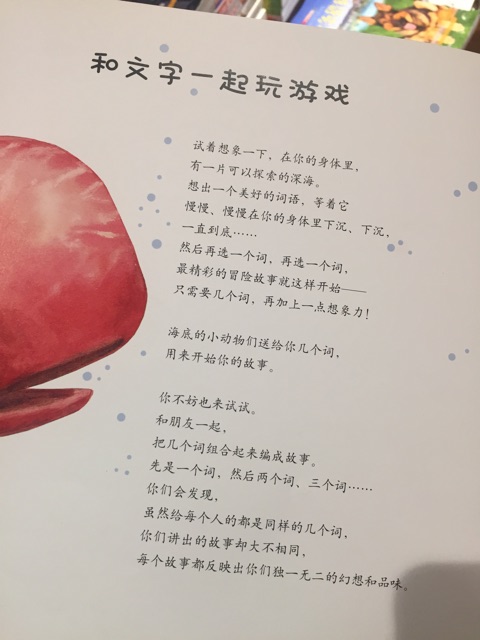 和文字一起玩游戏
试着想象一下，在你的身体里，
有一片可以探索的深海。
想出一个美好的词语，等着它
慢慢、慢慢在你的身体里下沉、下沉，
一直到底……
然后再选一个词，再选一个词，
最精彩的冒险故事就这样开始——
只需要几个词，再加上一点想象力！
海底的小动物们送给你几个词，
用来开始你的故事。
你不妨也来试试。
和朋友一起，
把几个词组合起来编成故事。
先是一个词，然后两个词、三个词……
你们会发现，
虽然给每个人的都是同样的几个词，
你们讲出的故事却大不相同，
每个故事都反映出你们独一无二的幻想和品味。